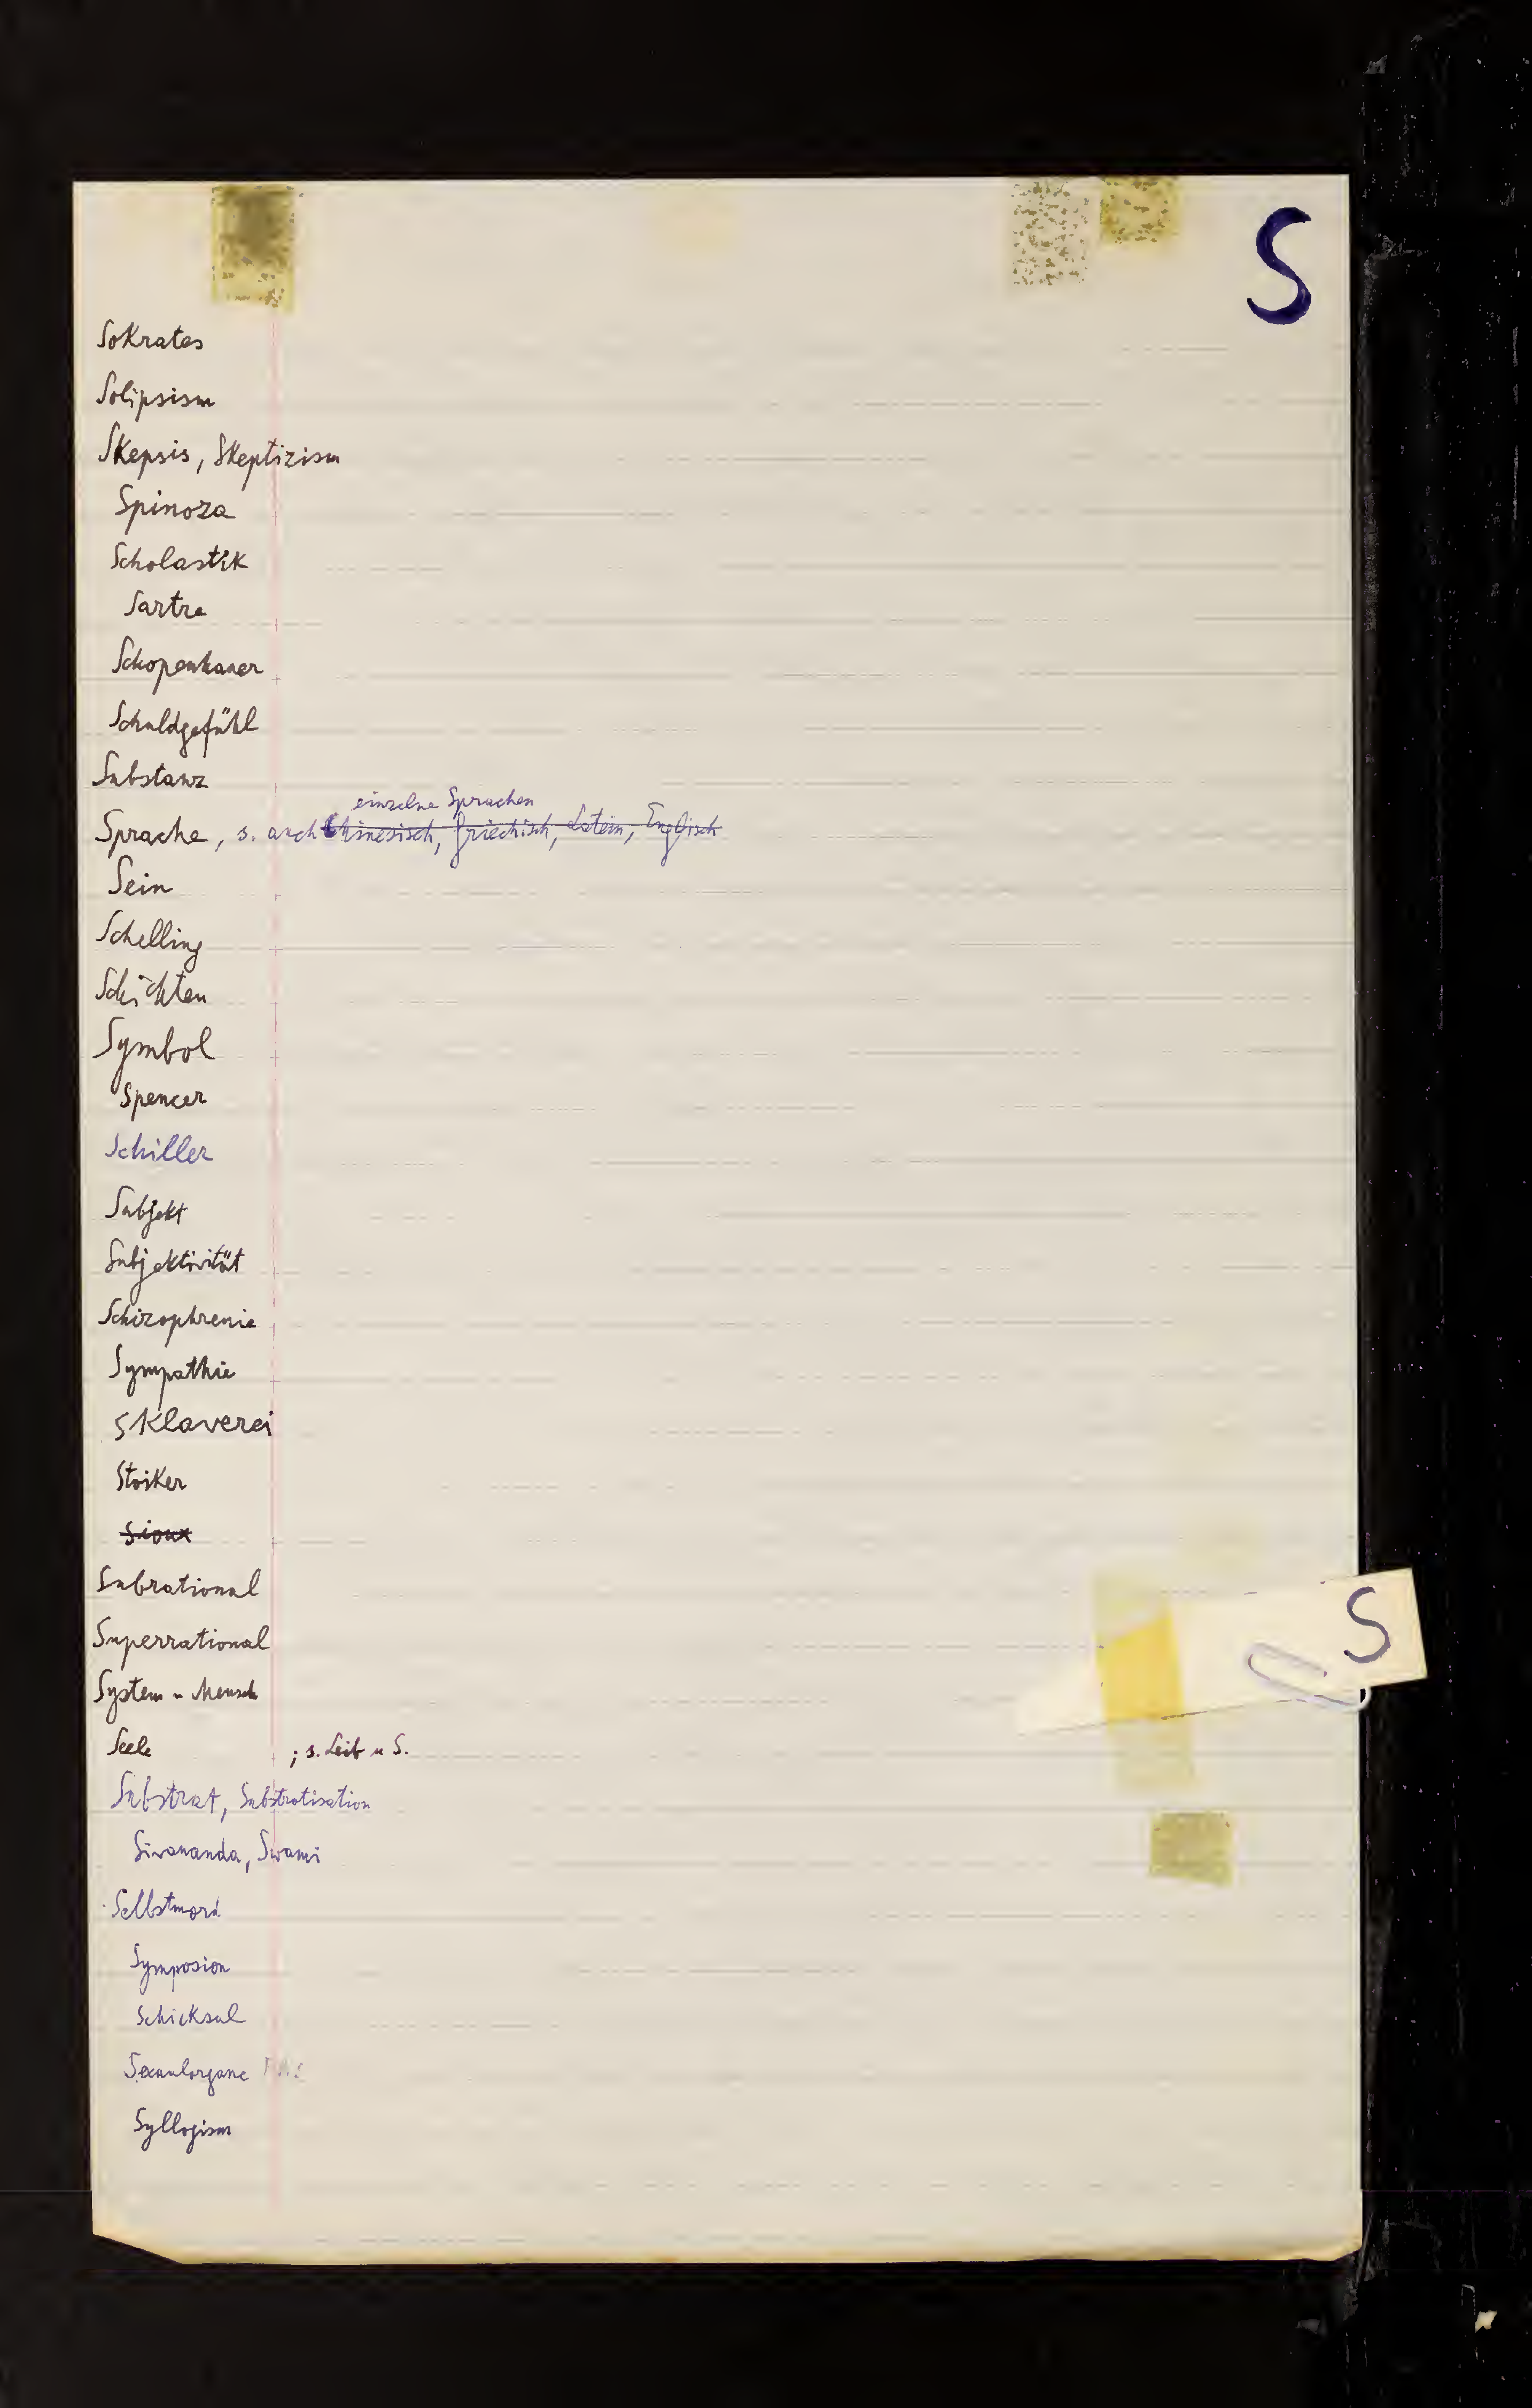 S
Sokrates
Solipsism
Skepsis, Skeptizism
Spinoza
Scholastik
Sartre
Schopenhauer
Schuldgefühl
Substanz
einzelne Sprachen
Sprache, s. auch Chinesisch, Griechisch, Latein, Englisch
Sein
Schelling
Schichten
Symbol
Spencer
Schiller
Subjekt
Subjektivität
Schizophrenie
Sympathie
Sklaverei
Stoiker
Sioux
Subrational
Superrational
S
System u Mensch
Seele ; s. Leib u S.
Substrat, Substratisation
Sivananda, Swami
Selbstmord
Symposion
Schicksal
Sexualorgane
Syllogism